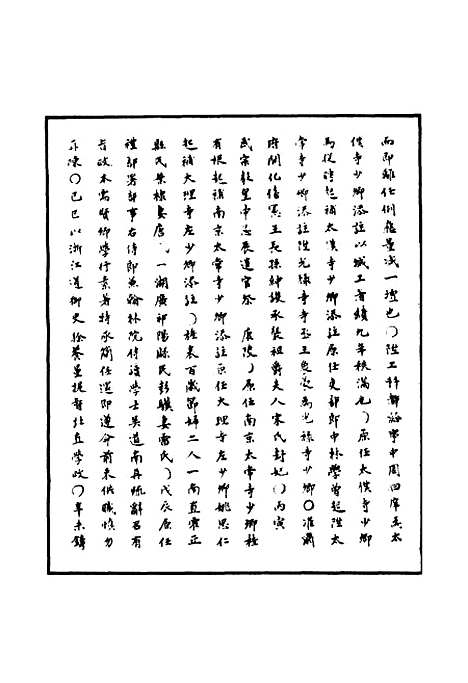 而即離任例應量減一瓚也○陞工科都給事中周四序為太
僕寺少卿添註以城工省績九年秩滿也○原任太僕寺少卿
馬從聘起補太僕寺少卿添註原任吏部郎中林學曾起陞太
常寺少卿添註陞光祿寺寺丞王為光祿寺少卿○准肅
府開化僖憲王長孫紳承襲祖爵夫人宋氏封妃○丙寅
武宗毅皇帝忌辰遣官祭 康陵○原任南京太常寺少卿桂
有根起補南京太常寺少卿添註原任大理寺左少卿姚思仁
起補大理寺左少卿添註○旌表百歲節婦二人一南直霍正
縣民柴棟妻唐氏一湖廣祁陽縣民彭騏妻雷氏○戊辰原任
禮部署部事右侍郎兼翰林院侍讀學士吳道南再疏辭召有
旨政本需賢卿學行素著特承簡任還即遵命前來供職慎勿
再陳○己巳以浙江道御史徐養量提督北直學政○辛未鑄